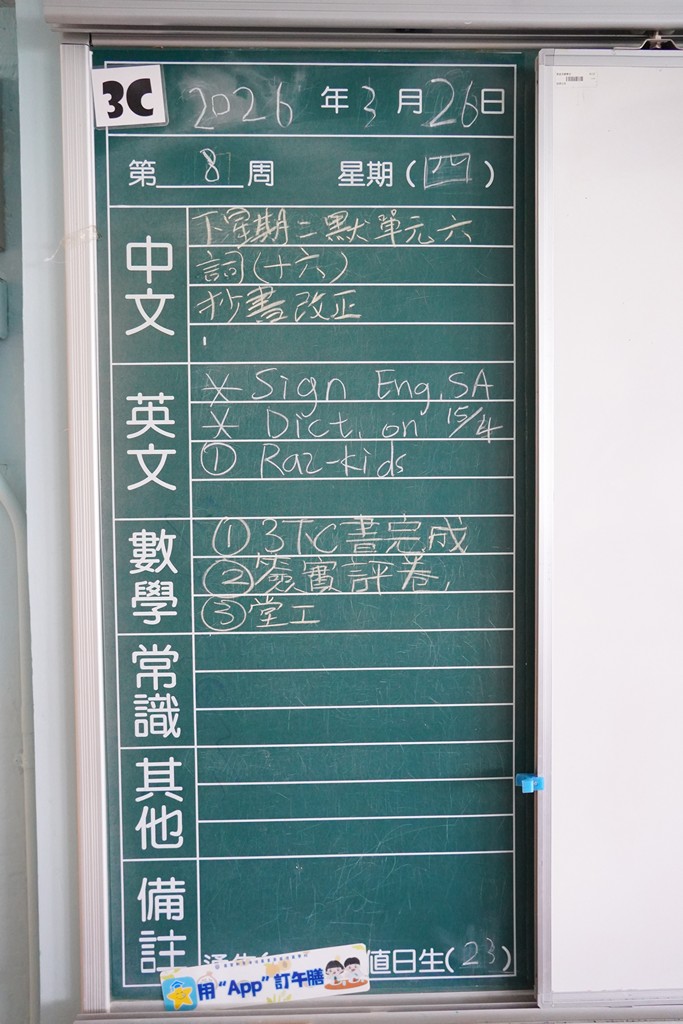 3C
2026 年 3 月 26 日
第 8 周 星期 ( 四 )
中文
下星期二默單元六
詞(十六)
抄書改正
英文
* Sign Eng. SA
* Dict. on 15/4
① Raz-kids
數學
① 3TC書完成
② 簽實評卷,
③ 堂工
常識
其他
備註
值日生(23)
用“App”訂午膳